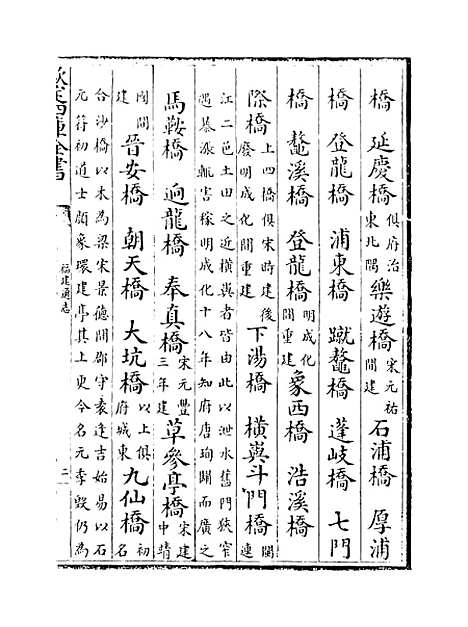 橋 延慶橋 俱府治東北隅 樂遊橋 宋元祐間建 石浦橋 厚浦
橋 登龍橋 浦東橋 蹴鼇橋 蓬岐橋 七門
橋 鼇溪橋 登龍橋 明成化間重建 象西橋 浩溪橋
際橋 上四橋俱宋時建後廢明成化間重建 下湯橋 橫嶼斗門橋 閩連
江二邑土田之近橫嶼者皆由此以泄水舊門狹窄
遇暴漲輒害稼明成化十八年知府唐珣闢而廣之
馬鞍橋 逈龍橋 奉真橋 宋元豐三年建 草參亭橋 宋建中靖
國間建 晉安橋 朝天橋 大坑橋 以上俱府城東 九仙橋 初名
合沙橋以木為梁宋景德間郡守袁逢吉始易以石
元符初道士顔象環建亭其上更今名元季毁仍為
欽定四庫全書
福建通志
二